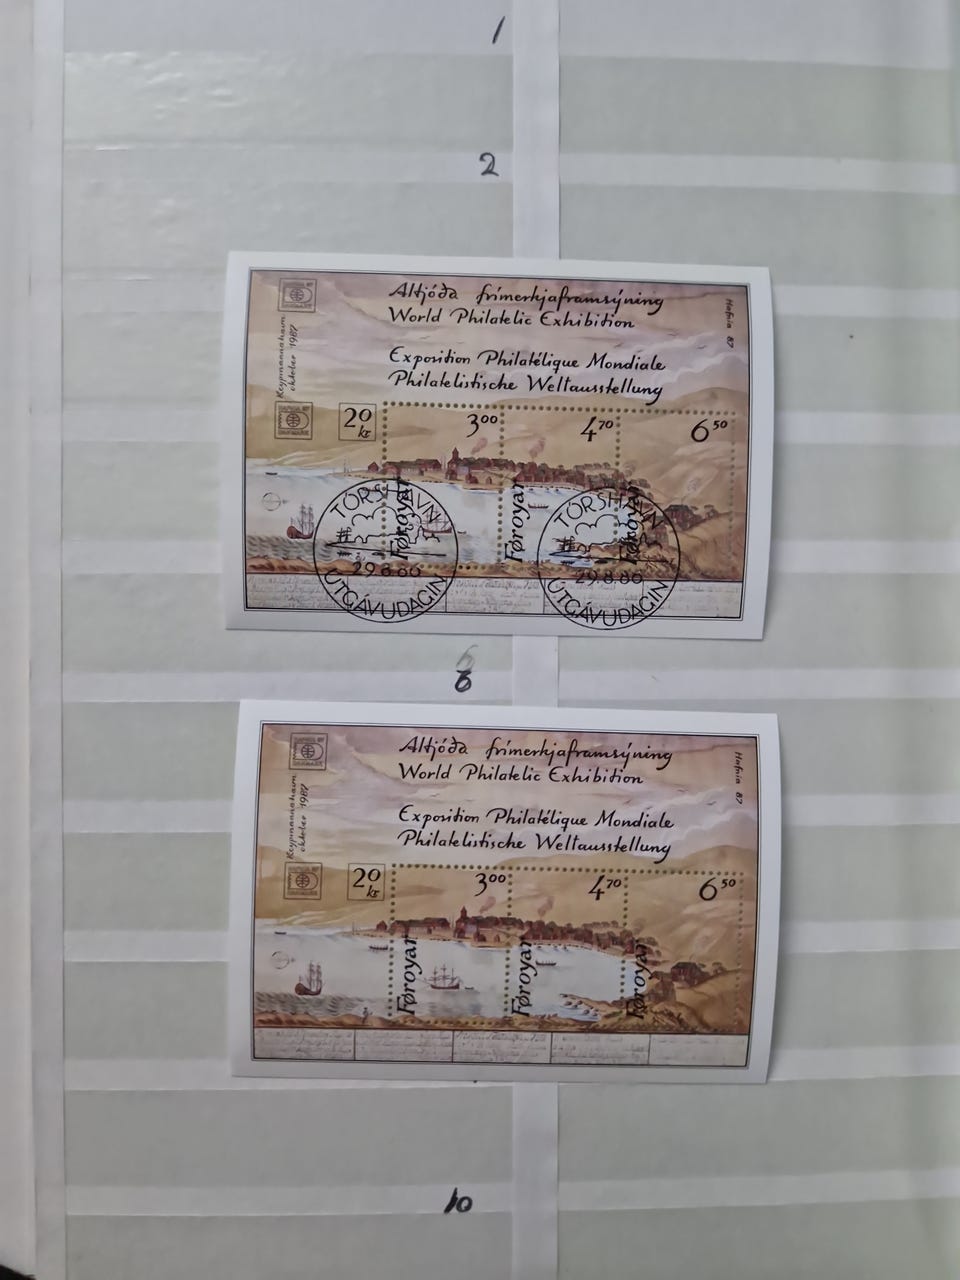 1
2
Altjóða frímerkjaframsýning
World Philatelic Exhibition
Exposition Philatélique Mondiale
Philatelistische Weltausstellung
Hafnia 87
Keypmannahavn
oktober 1987
HAFNIA 87
DANMARK
20
kr
300
4 70
6 50
Føroyar
Føroyar
Føroyar
TÓRSHAVN
29.8.86
ÚTGÁVUDAGIN
TÓRSHAVN
29.8.86
ÚTGÁVUDAGIN
6
8
Altjóða frímerkjaframsýning
World Philatelic Exhibition
Exposition Philatélique Mondiale
Philatelistische Weltausstellung
Hafnia 87
HAFNIA 87
DANMARK
Keypmannahavn
oktober 1987
HAFNIA 87
DANMARK
20
kr
300
4 70
6 50
Føroyar
Føroyar
Føroyar
10